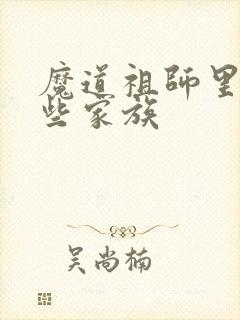 魔道祖师里
些家族
吴尚楠